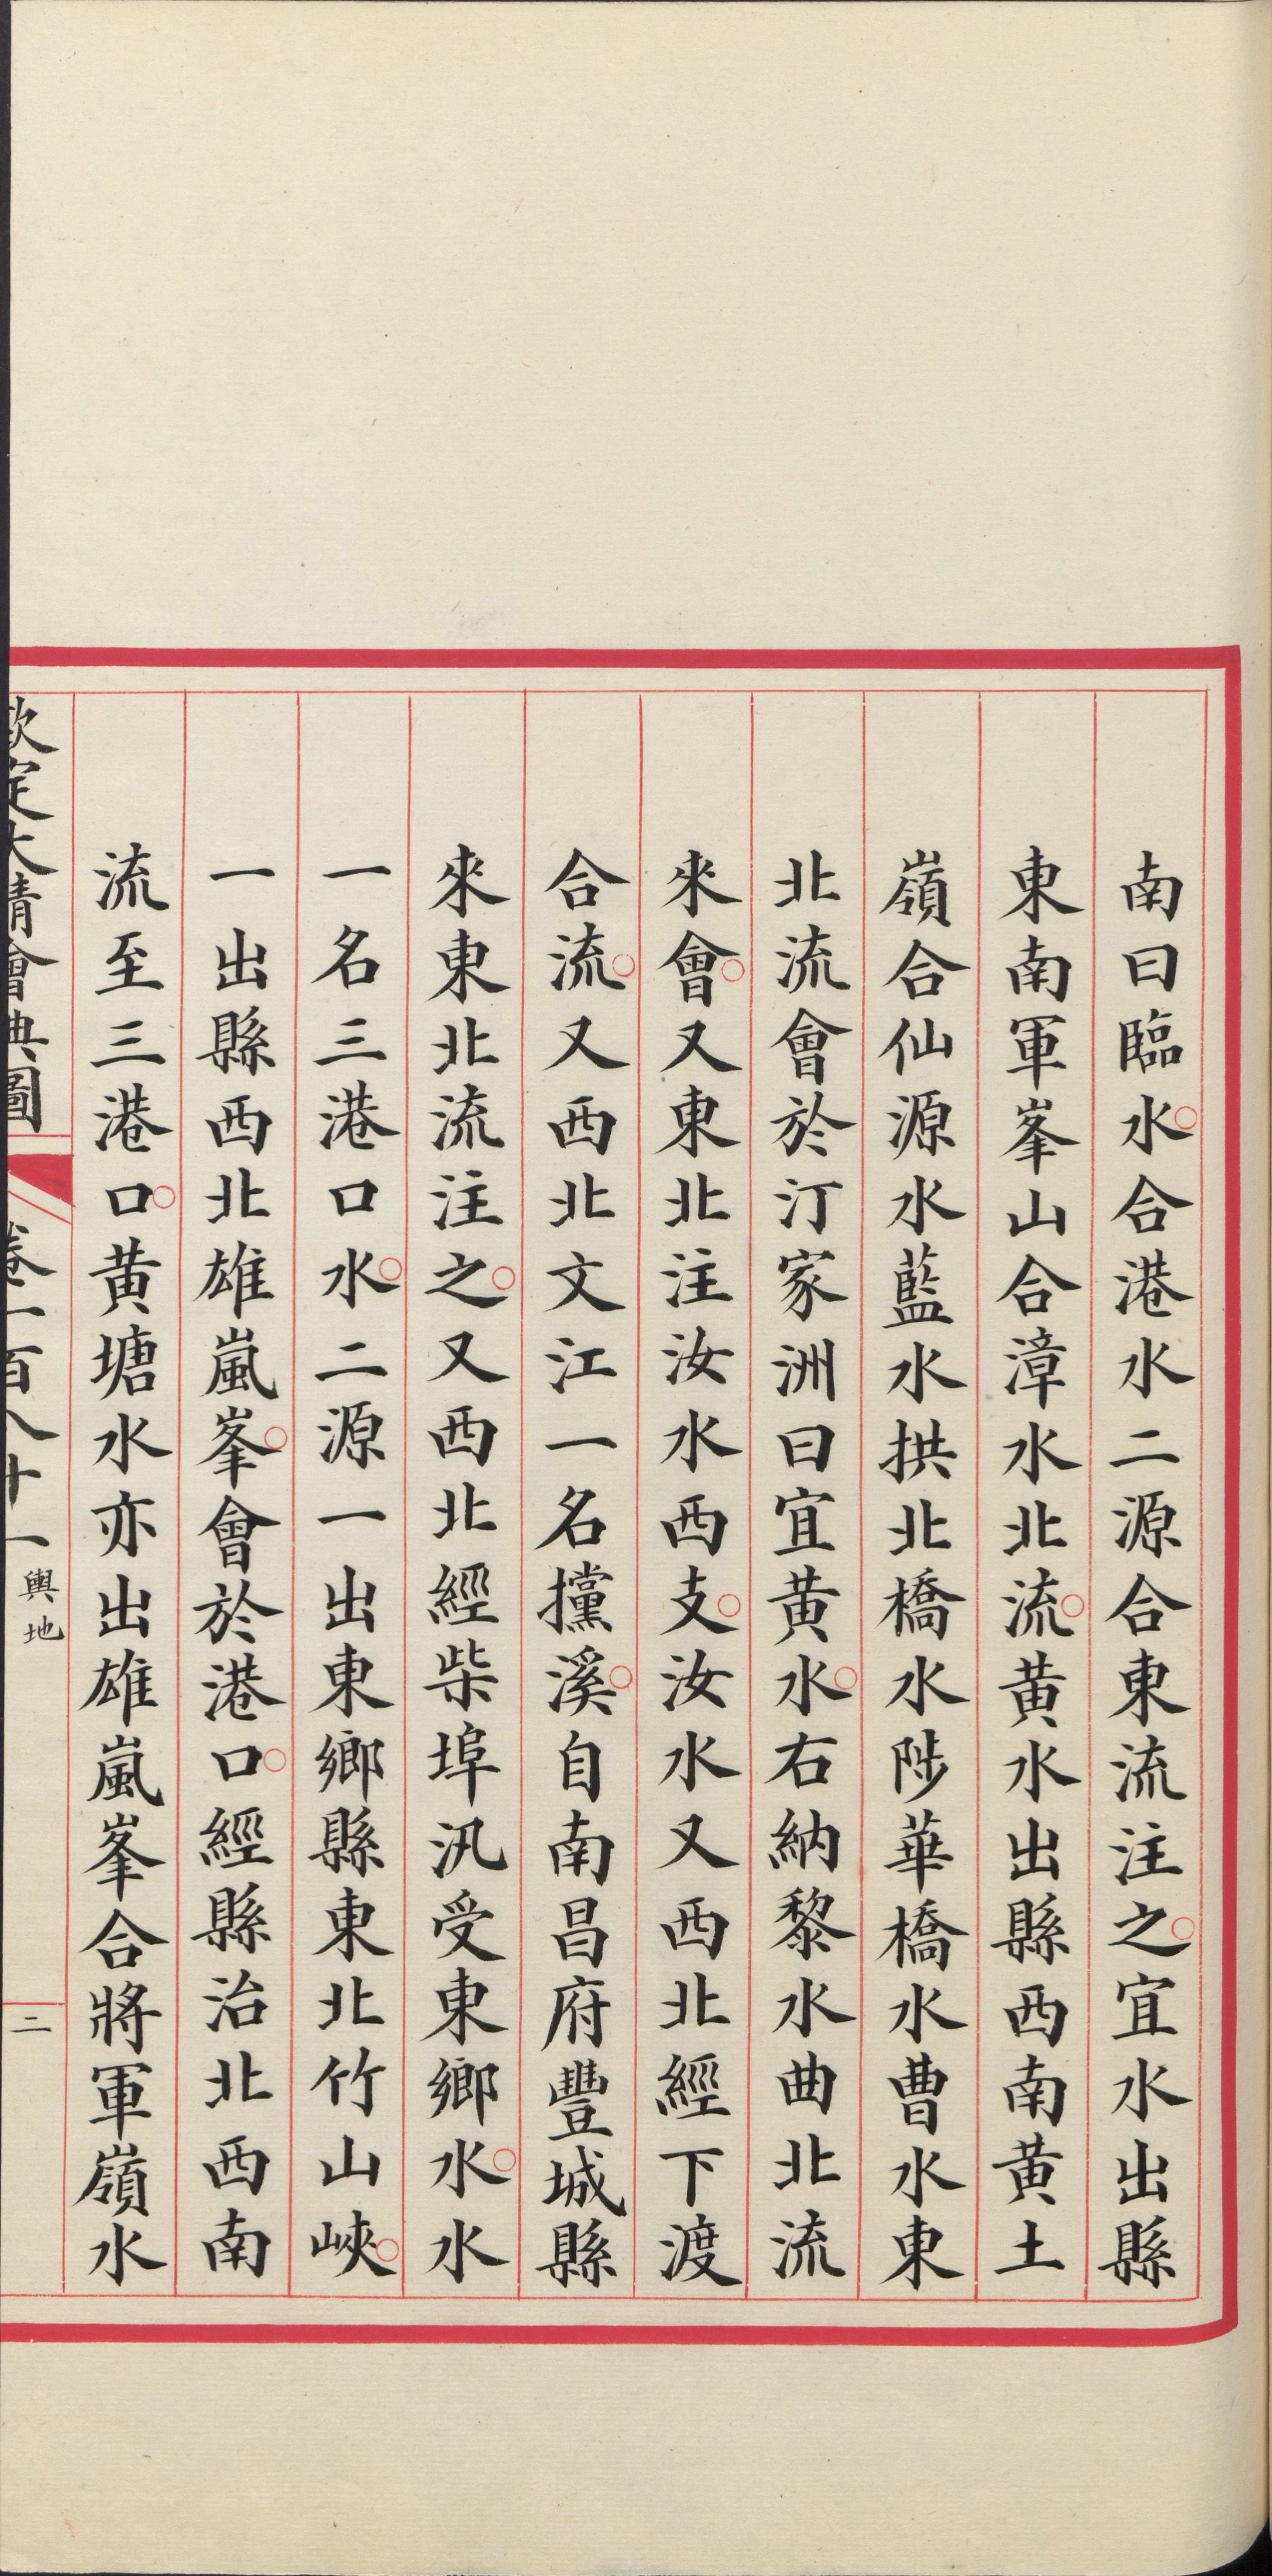 南曰臨水合港水二源合東流注之宜水出縣
東南軍峯山合漳水北流黄水出縣西南黄土
嶺合仙源水藍水拱北橋水陟華橋水曹水東
北流會於汀家洲曰宜黄水右納黎水曲北流
來會又東北注汝水西支汝水又西北經下渡
合流又西北文江一名攩溪自南昌府豐城縣
來東北流注之又西北經柴埠汛受東鄉水水
一名三港口水二源一出東鄉縣東北竹山峽
一出縣西北雄嵐峯會於港口經縣治北西南
流至三港口黄塘水亦出雄嵐峯合將軍嶺水
欽定大清會典圖 卷一百八十一 輿地 二